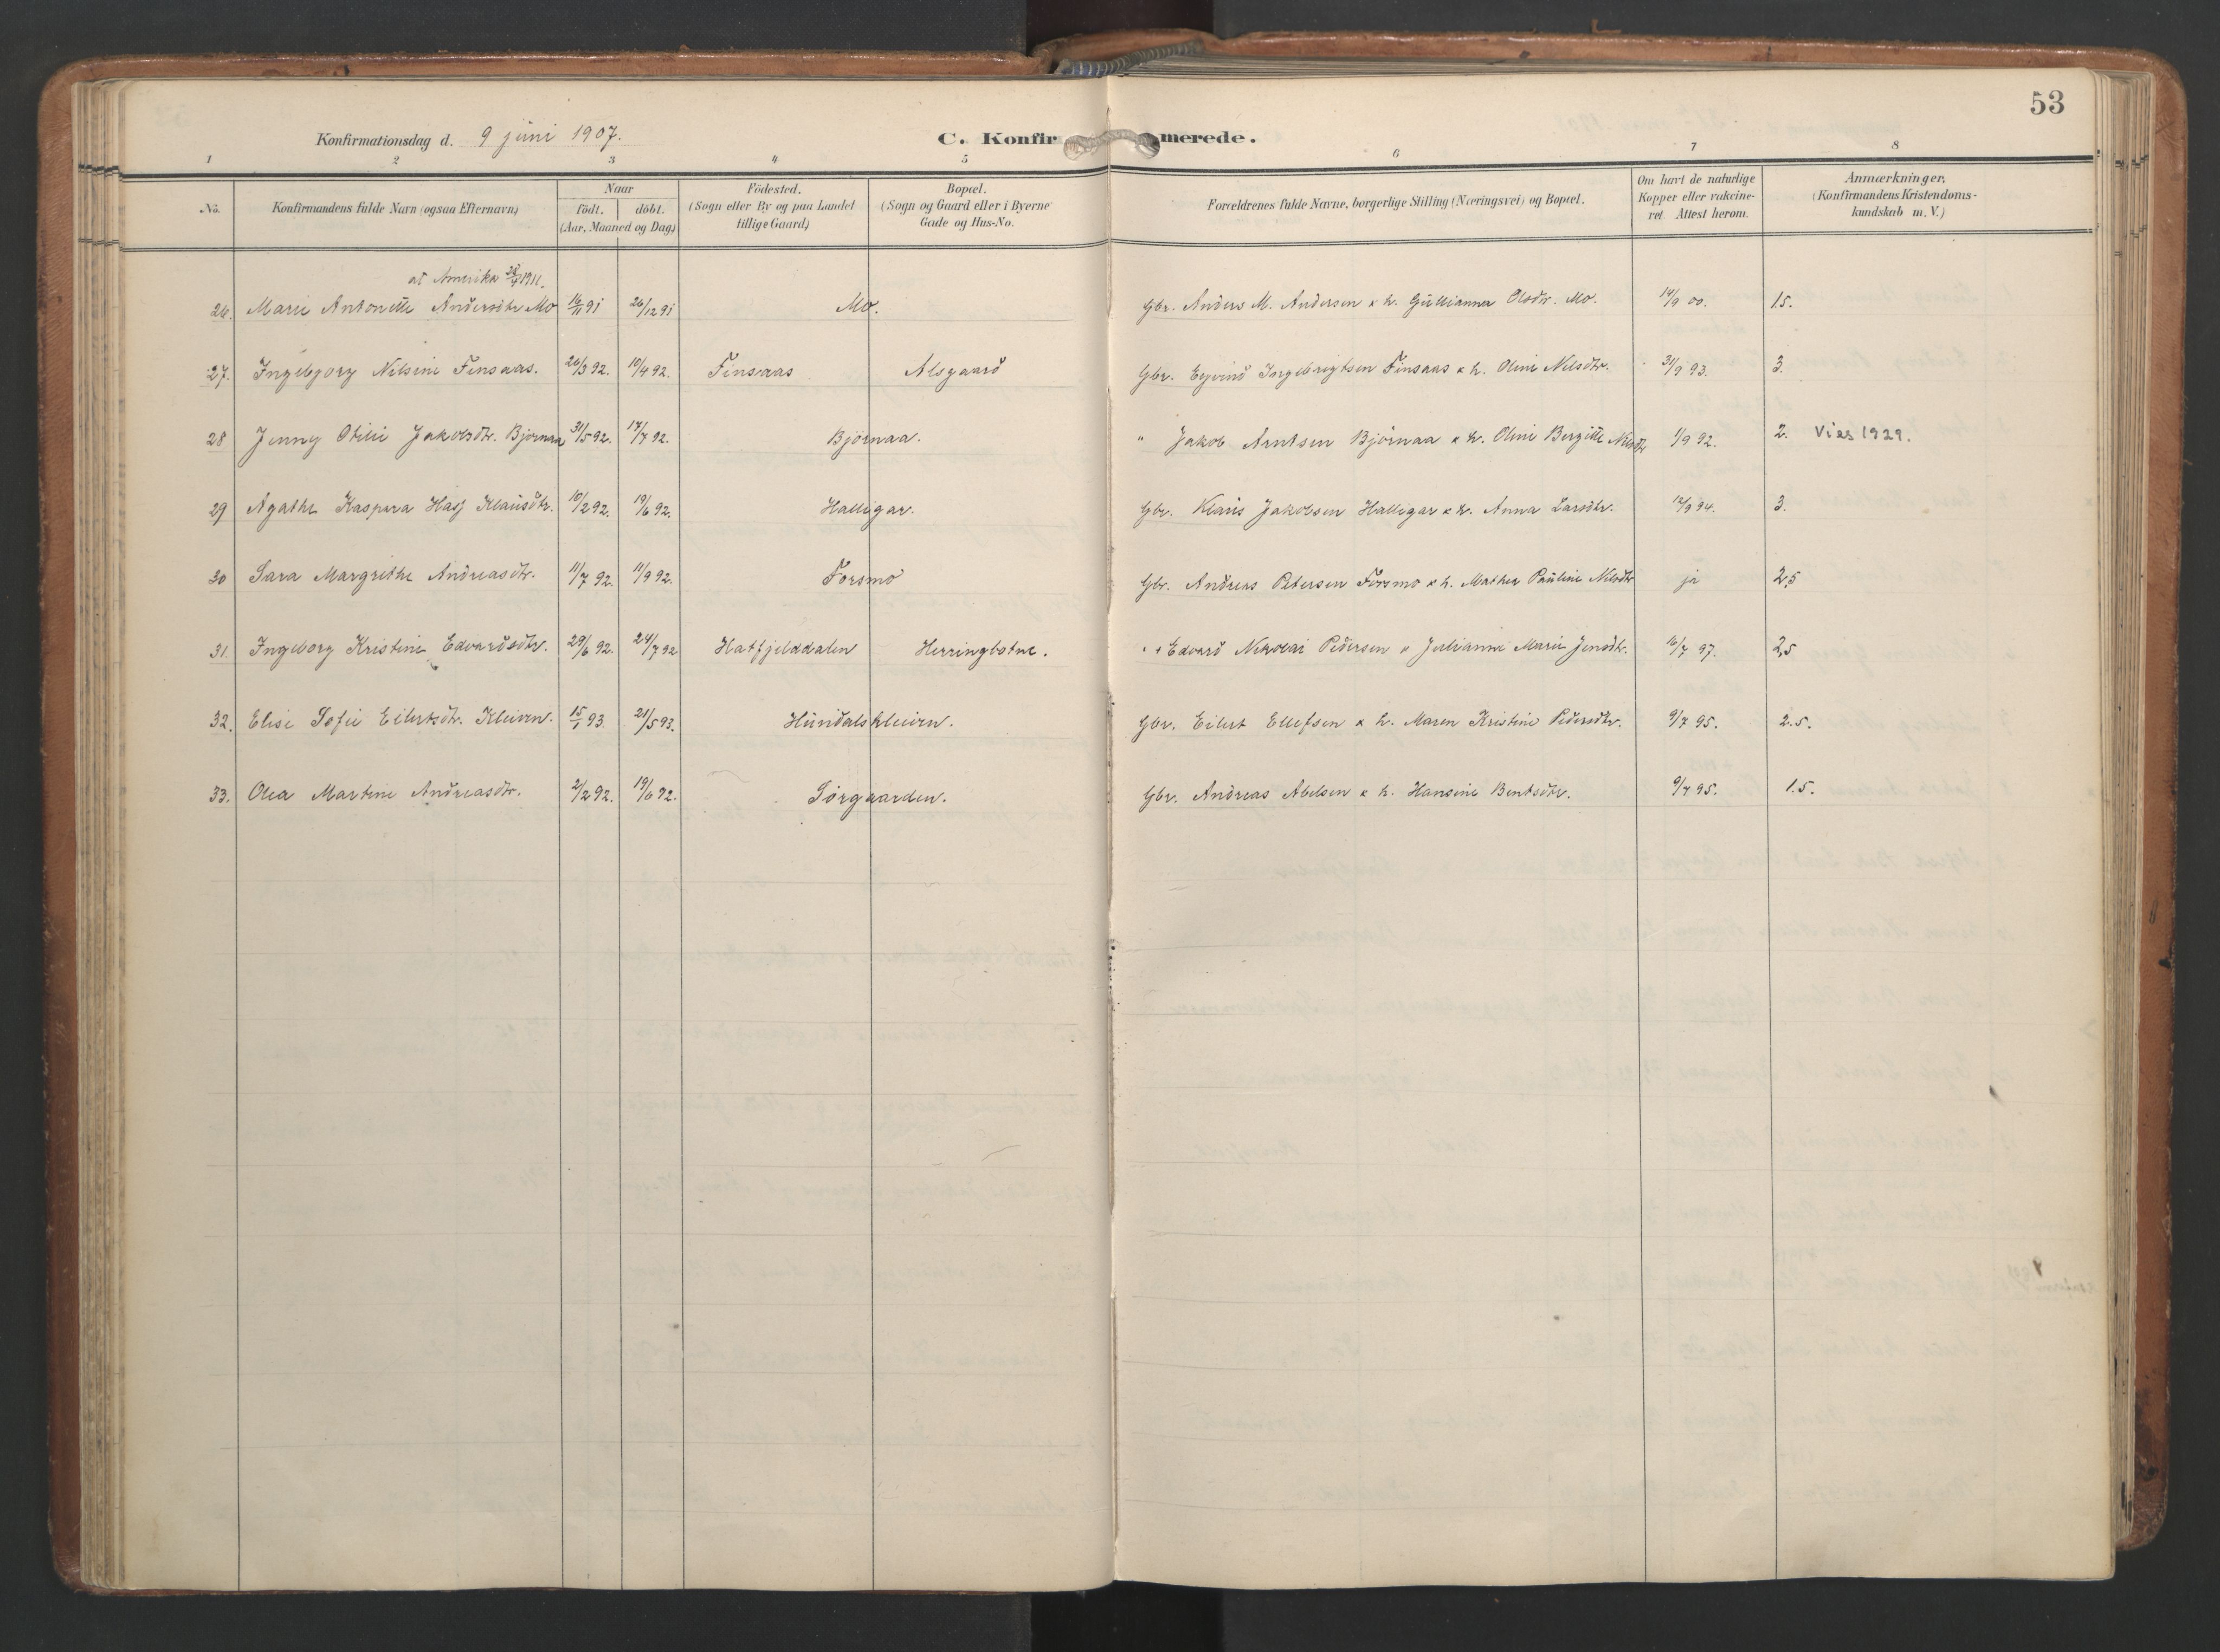 53
Konfirmationsdag d. 9 juni 1907.
C. Konfirmerede.
1 2 3 4 5 6 7 8
No. Konfirmandens fulde Navn (ogsaa Efternavn)
Naar
födt. döbt.
(Aar, Maaned og Dag)
Födested.
(Sogn eller By og paa Landet
tillige Gaard)
Bopæl.
(Sogn og Gaard eller i Byerne
Gade og Hus-No.
Forældrenes fulde Navne, borgerlige Stilling (Næringsvei) og Bopæl.
Om havt de naturlige
Kopper eller vakcine-
ret. Attest herom.
Anmærkninger,
(Konfirmandens Kristendoms-
kundskab m. V.)
at Amerika 1911.
26. Marie Antonette Andersdtr Mo 16/11 91 26/12 91 Mo. Gbr. Anders M. Andersen & h. Gullianna Olsdtr. Mo. 14/9 00. 1.5.
27. Ingebjorg Nilsine Finsaas. 26/3 92. 10/4 92. Finsaas Alsgaard Gbr. Eyvind Ingebrigtsen Finsaas & h. Oline Nilsdtr. 31/9 93. 3.
28 Jenny Otilie Jakobsdtr. Björnaa 31/5 92. 17/7 92. Björnaa. " Jakob Arntsen Björnaa & h. Oline Bergitte Nilsdtr 1/9 92. 2. Vies 1929.
29 Agathe Kaspara Hasf Klausdtr. 10/2 92. 19/6 92. Halligar. Gbr. Klaus Jakobsen Halligar & h. Anna Larsdtr. 17/9 94. 3.
30 Sara Margrethe Andreasdtr. 11/7 92. 11/9 92. Forsmo Gbr. Andreas Petersen Forsmo & h. Mathea Pauline Nilsdtr ja 2,5
31. Ingeborg Kristine Edvardsdtr. 29/6 92. 24/7 92 Hatfjelddalen Herringbotne. " + Edvard Nikolai Pedersen & Julianne Marie Jensdtr. 16/7 97. 2,5
32. Elise Sofie Eilertsdtr. Kleiven. 15/1 93 21/5 93. Hundalskleiven. Gbr. Eilert Ellefsen & h. Maren Kristine Pedersdtr. 9/7 95. 2.5.
33. Olea Martine Andreasdtr. 2/2 92. 19/6 92. Sörgaarden. Gbr. Andreas Abelsen & h. Hansine Bentsdtr. 9/7 95. 1.5.